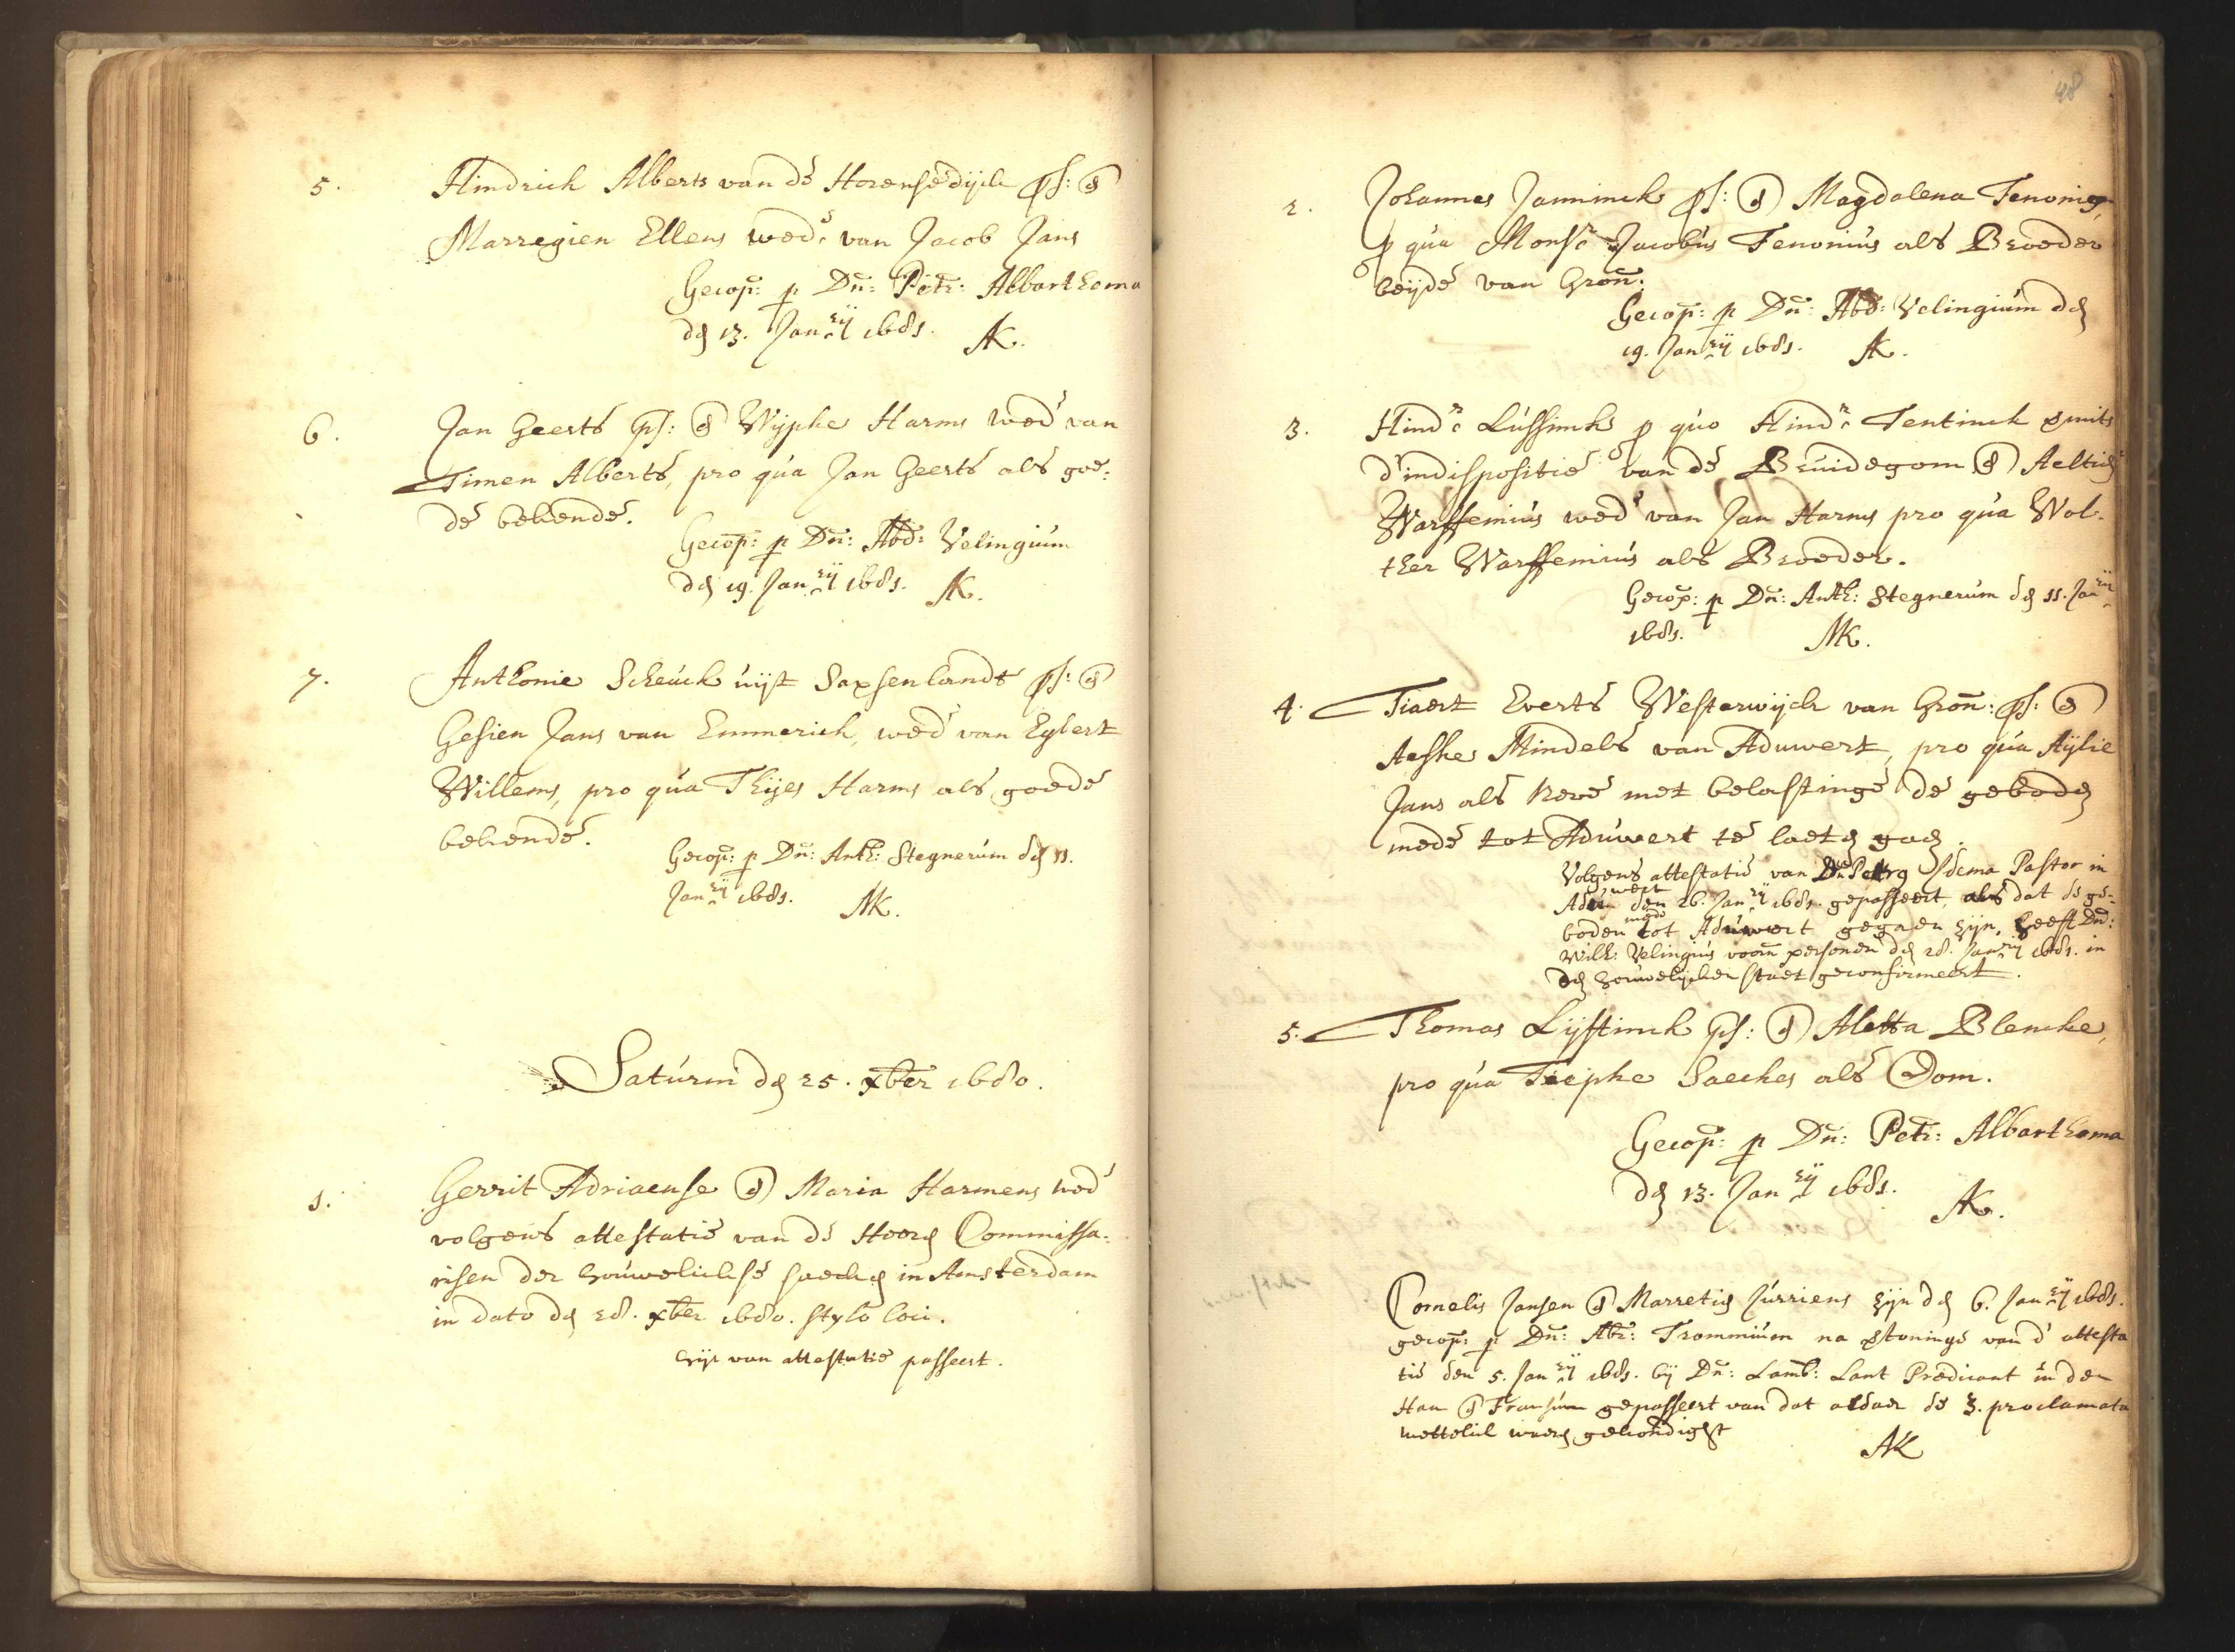 5. Hindrich Alberts van de Horensedijck ps: &
Marregien Ellens wed: van Jacob Jans
Gecop: p Dn: Petr: Albarthoma
den 13. Janrij 1681. AK.
6. Jan Geerts ps: & Wypke Harms wed van
Timen Alberts, pro qua Jan Geerts als goe-
de bekende.
Gecop: p Dn: Abr: Velingium
den 19. Janrij 1681. AK.
7. Anthonie Scheuck uijt Saxsenlandt ps: &
Gesien Jans van Emmerich, wed van Egbert
Willems, pro qua Thijes Harms als goede
bekende.
Gecop: p Dn: Anth: Stegnerum den 11.
Janrij 1681. AK.
Saturni den 25. xber 1680.
1. Gerrit Adriaense & Maria Harmens wed
volgens attestatie van de Heeren Commissa-
risen der houwelickse saecken in Amsterdam
in dato den 28. xber 1680. stylo loci.
hijr van attestatie passeert.
48
2. Johannes Janninck ps: & Magdalena Fenonies,
p qua Monsr Jacobus Fenonius als Broeder
beijde van Gron:
Gecop: p Dn: Abr: Velingium den
19. Janrij 1681. AK.
3. Hindr: Lussinck p quo Hindr: Tentinck vmits
d'indispositie van de Bruidegom & Aeltien
Warffemius wed van Jan Harms pro qua Wol-
ther Warffemius als Broeder.
Gecop: p Dn: Anth: Stegnerum den 11. Janrij
1681. AK.
4. Tiaert Everts Westerwijck van Gron: ps: &
Aefke Mindels van Aduwert, pro qua Aijlie
Jans als Neve met belastinge de geboden
mede tot Aduwert te laeten gaen.
Volgens attestatie van Dn Petrg Idema Pastor in
Aduwert den 26. Janrij 1681. gepasseert, als dat de ge-
boden mede tot Aduwert gegaen zijn, heeft Dn:
Wilh: Velingius voorn personen den 28. Janrij 1681. in
den houwelijcken staet geconfirmeert.
5. Thomas Lijftinck ps: & Aletta Blencke,
pro qua Tiepke Saeckes als Oom.
Gecop: p Dn: Petr: Albarthoma
den 13. Janrij 1681. AK.
Cornelis Jansen & Marretien Jurriens zijn den 6. Janrij 1681.
gecop: p Dn: Abr: Trommium na vtoninge van d' attesta
tie den 5. Janrij 1681. bij Dn: Lamb: Lant Predicant in den
Ham & Fransum gepasseert van dat aldaer de 3. proclamata
wettelick waren gekondight
AK